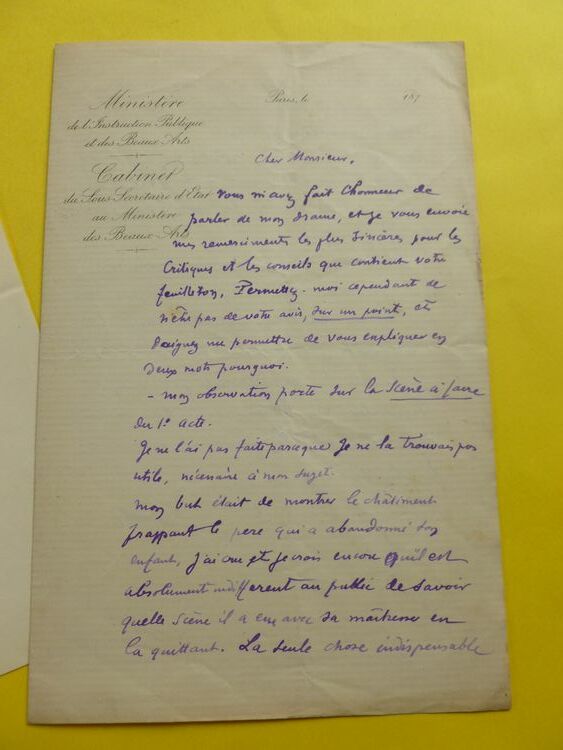 Ministère
de l'Instruction Publique
et des Beaux-Arts
Cabinet
du Sous Secrétaire d'Etat
au Ministère
des Beaux Arts
Paris, le 187
Cher Monsieur,
vous m'avez fait l'honneur de
parler de mon drame, et je vous envoie
mes remerciments les plus sincères pour les
critiques et les conseils que contient votre
feuilleton. Permettez-moi cependant de
n'être pas de votre avis, sur un point, et
daignez me permettre de vous expliquer en
deux mots pourquoi.
- mon observation porte sur la scène à faire
du 1er acte.
Je ne l'ai pas faite parceque je ne la trouvais pas
utile, nécessaire à mon sujet.
mon but était de montrer le châtiment
frappant le père qui a abandonné son
enfant, j'ai cru et je crois encore qu'il est
absolument indifférent au public de savoir
quelle scène il a eue avec sa maîtresse en
la quittant. La seule chose indispensable